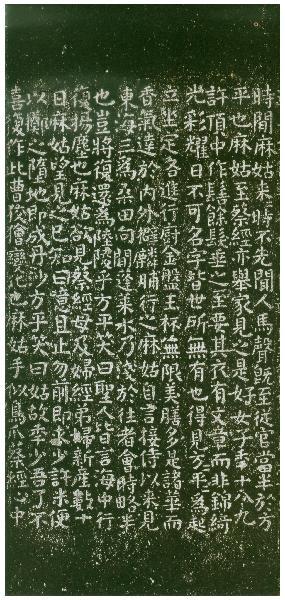 時間麻姑來時不先聞人馬聲既至從官當半於方
平也麻姑至蔡經亦舉家見之是好女子年十八九
許頂中作髻餘髮垂之至要其衣有文章而非錦綺
光彩耀日不可名字皆世所無有也得見方平為起
立坐定各進行廚金盤玉杯無限美膳多是諸華而
香氣達於內外擗麟脯行之麻姑自言接待以來見
東海三為桑田向間蓬萊水乃淺於往者會時略半
也豈將復還為陸陵乎方平笑曰聖人皆言海中行
復揚塵也麻姑欲見蔡經母及婦經弟婦新產數十
日麻姑望見之已知曰噫且止勿前即求少許米便
以擲之墮地即成丹沙方平笑曰姑故年少吾了不
喜復作此曹狡獪變化也麻姑手似鳥爪蔡經心中